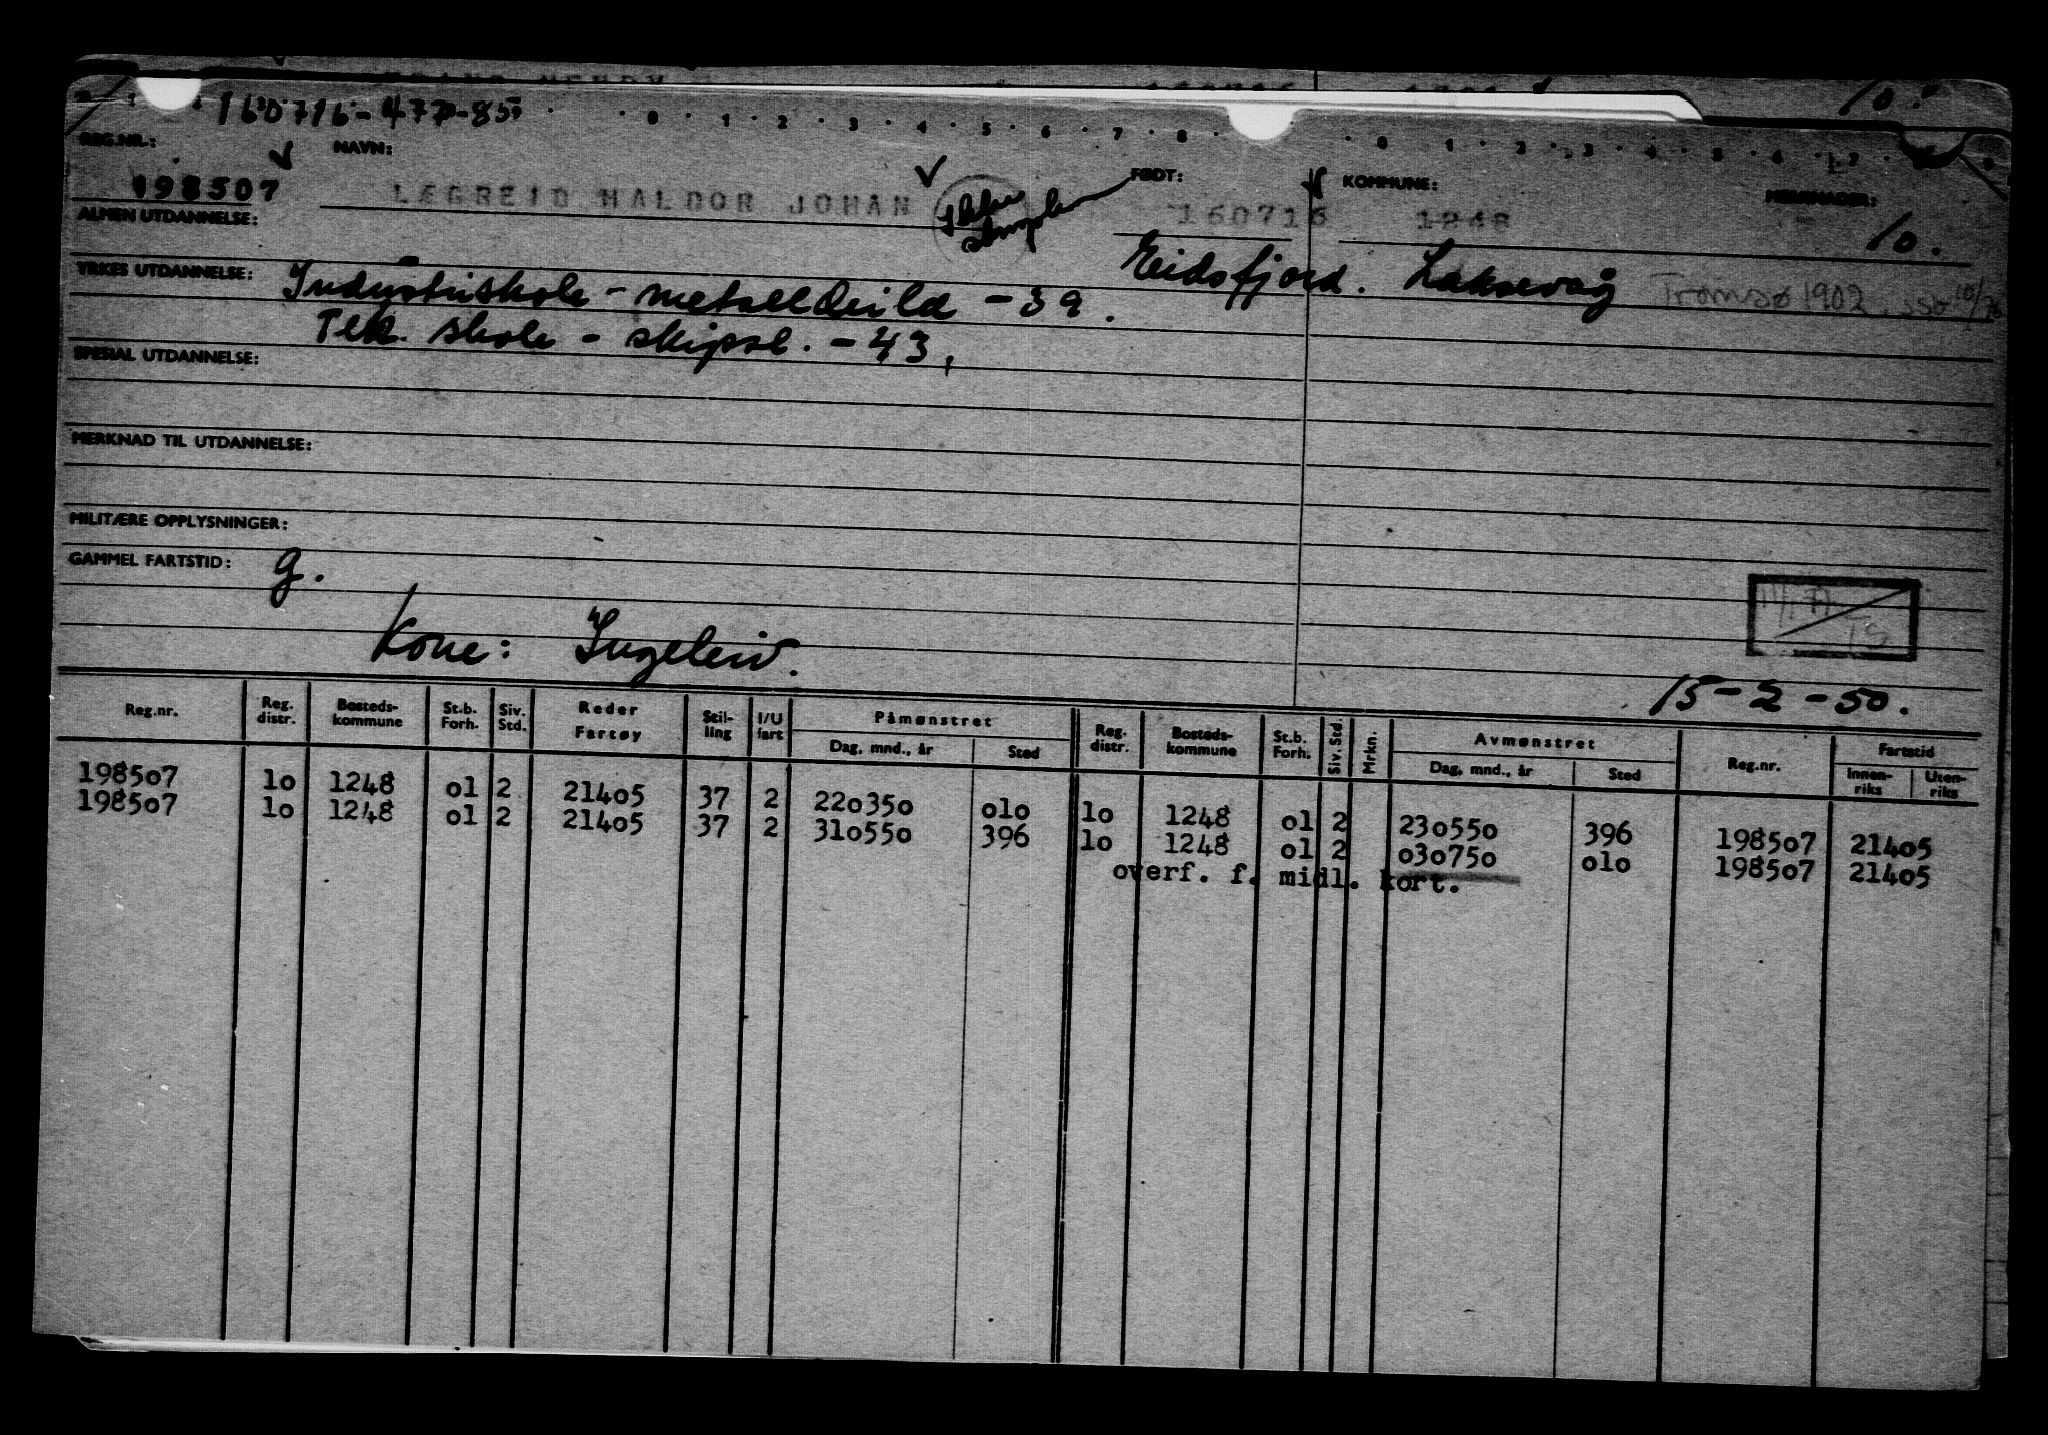 160716-477-85
0 1 2 3 4 5 6 7 8 0 1 2 3 4 5 6 7 9
REG.NR.: NAVN: FØDT: KOMMUNE: MERKNADER:
198507 LÆGREID HALDOR JOHAN 160716 1248 10.
ALMEN UTDANNELSE:
Eidsfjord. Laksevåg Tromsø 1902, ssb 10/
YRKES UTDANNELSE: Industriskole - metalldeild - 39.
Tek. skole - skipsb. - 43,
SPESIAL UTDANNELSE:
MERKNAD TIL UTDANNELSE:
MILITÆRE OPPLYSNINGER:
GAMMEL FARTSTID: g.
Kone: Ingeleiv.
15-2-50.
Reg.nr. Reg. distr. Bosteds-kommune St.b. Forh. Siv. Std. Reder Fartøy Stil-ling I/U fart Påmønstret Dag, mnd., år Sted Reg. distr. Bosteds-kommune St.b. Forh. Siv. Std. Mrkn. Avmønstret Dag, mnd., år Sted Reg.nr. Fartstid Innen-riks Uten-riks
198507 lo 1248 ol 2 21405 37 2 220350 olo lo 1248 ol 2 230550 396 198507 21405
198507 lo 1248 ol 2 21405 37 2 310550 396 lo 1248 ol 2 030750 olo 198507 21405
overf. f. midl. kort.